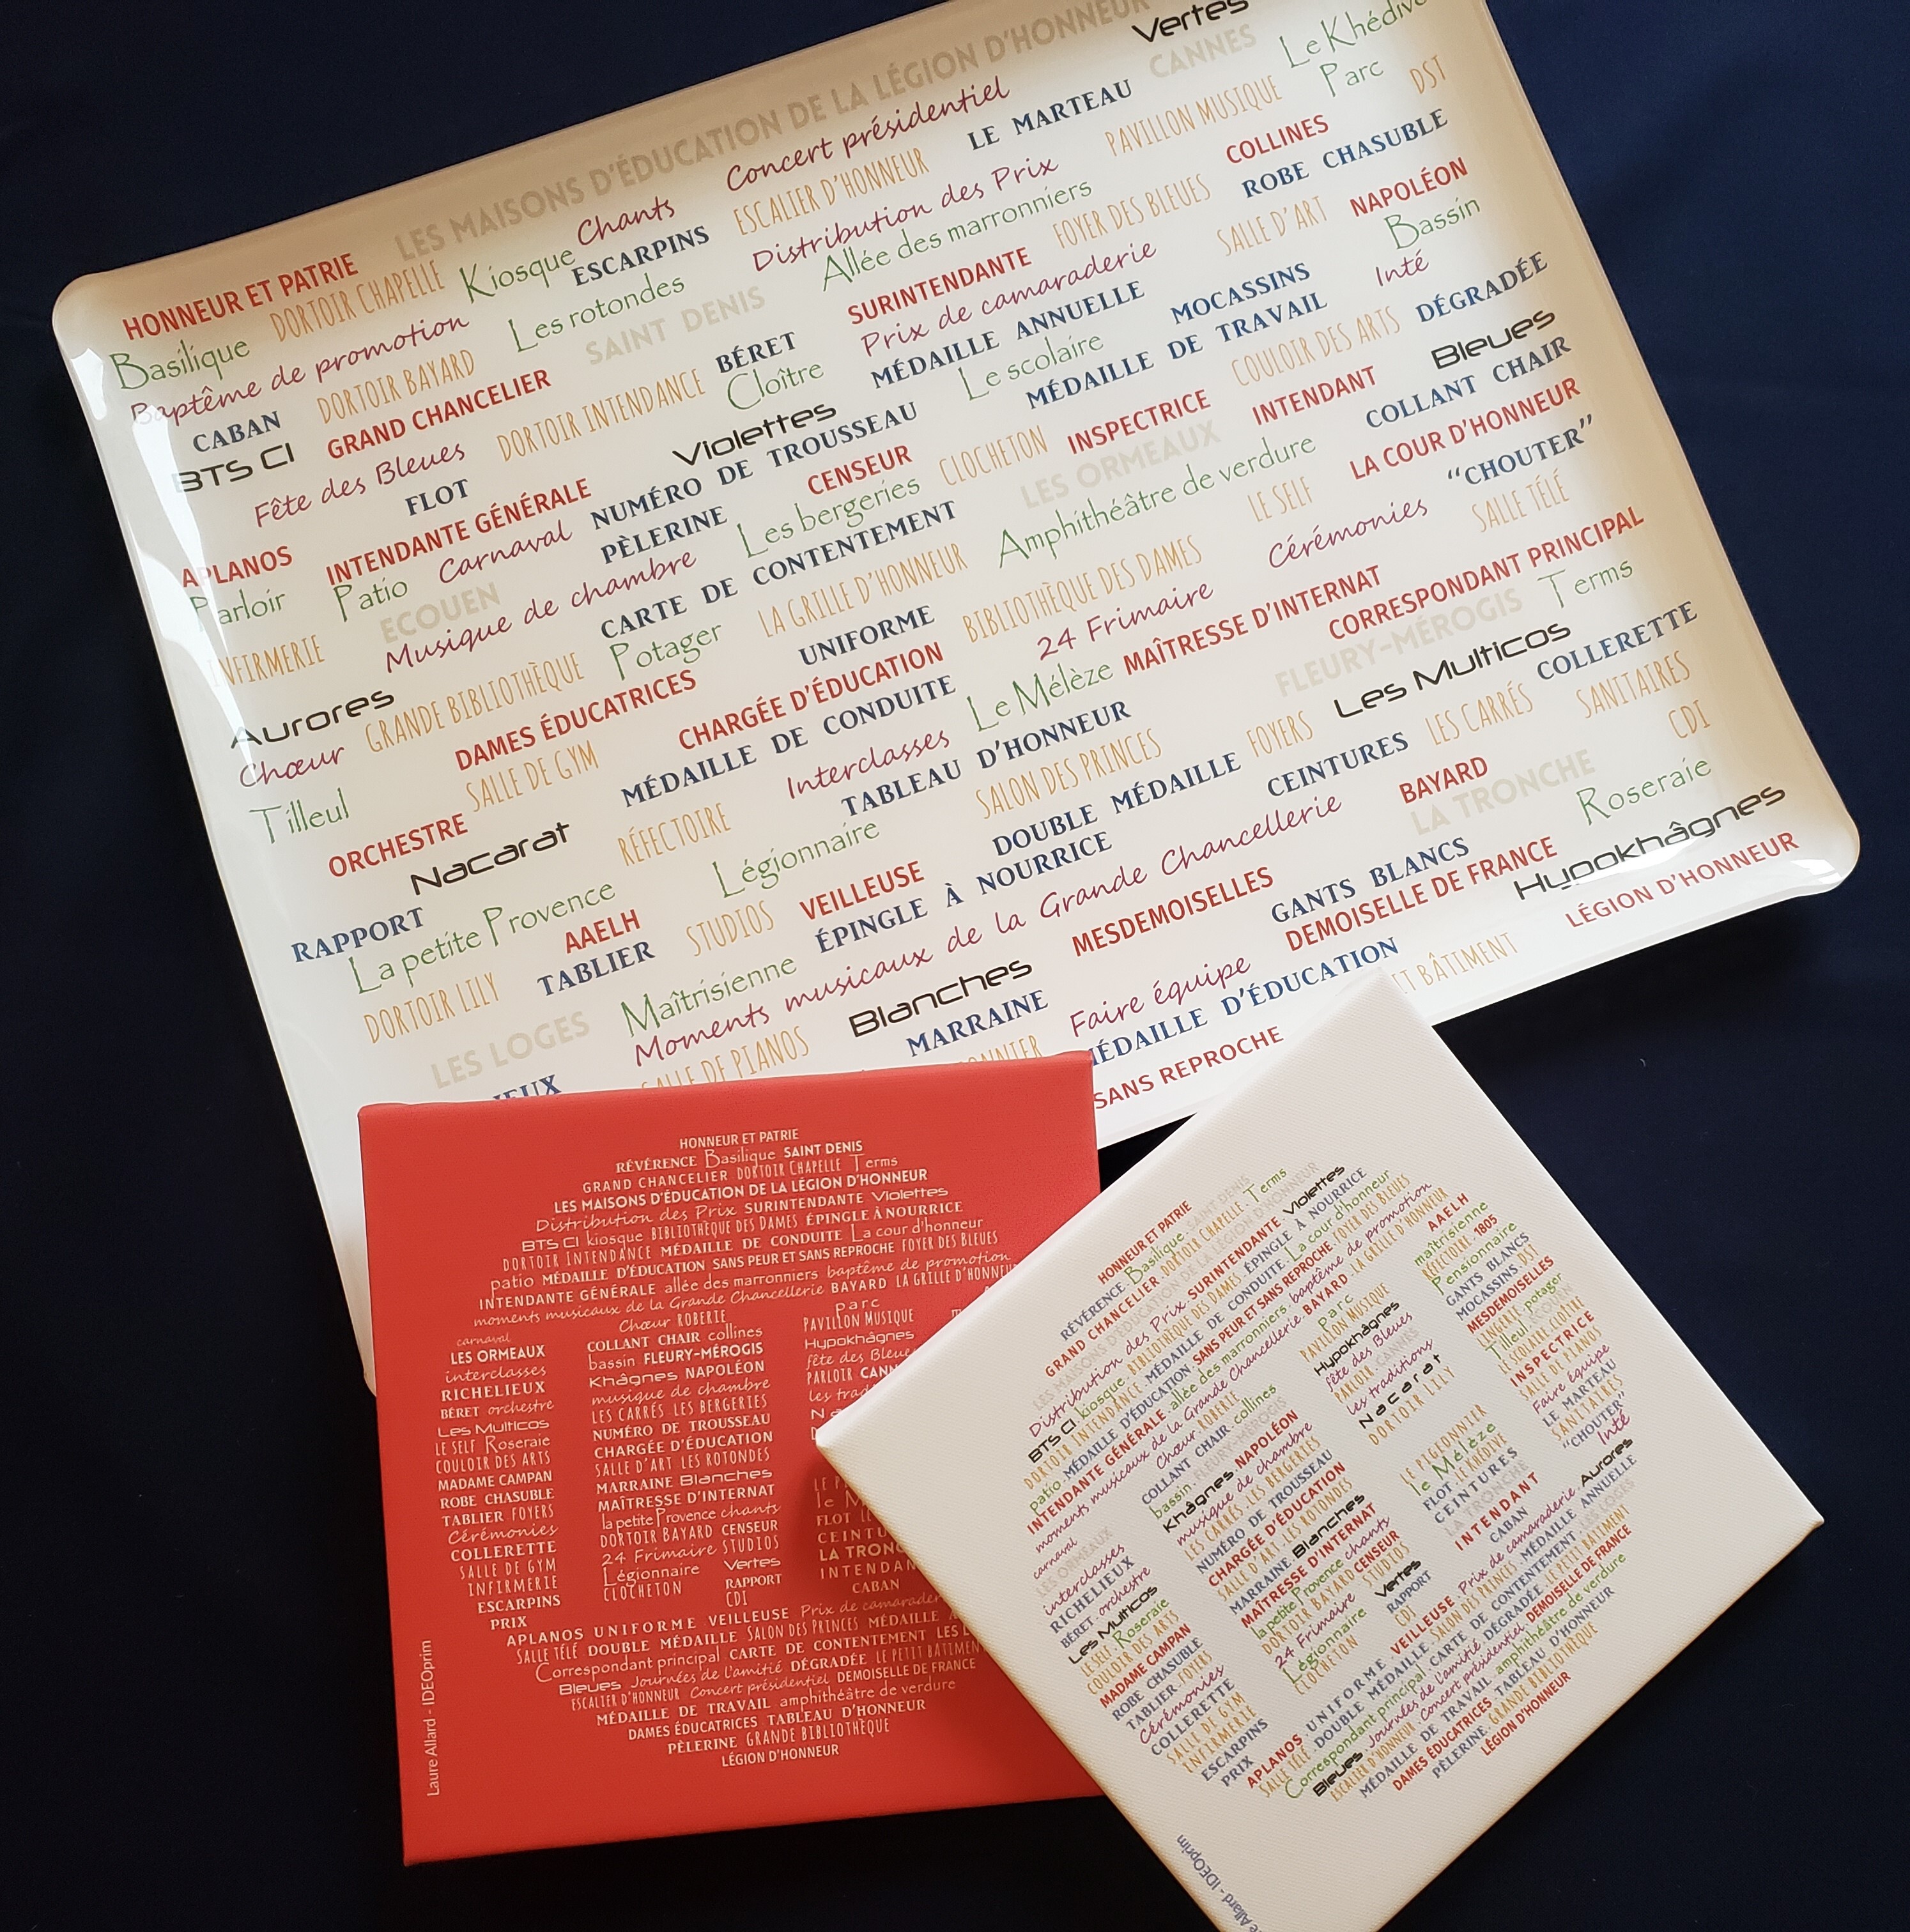 LES MAISONS D'ÉDUCATION DE LA LÉGION D'HONNEUR
Vertes
HONNEUR ET PATRIE
DORTOIR CHAPELLE
Kiosque
Chants
Concert présidentiel
LE MARTEAU
CANNES
Le Khédive
Basilique
ESCARPINS
ESCALIER D'HONNEUR
PAVILLON MUSIQUE
Parc
DST
Baptême de promotion
Les rotondes
Distribution des Prix
COLLINES
CABAN
DORTOIR BAYARD
SAINT DENIS
Allée des marronniers
FOYER DES BLEUES
ROBE CHASUBLE
BTS CI
GRAND CHANCELIER
BÉRET
SURINTENDANTE
SALLE D'ART
NAPOLÉON
Fête des Bleues
DORTOIR INTENDANCE
Cloître
Prix de camaraderie
Bassin
FLOT
Violettes
MÉDAILLE ANNUELLE
MOCASSINS
Inté
APLANOS
INTENDANTE GÉNÉRALE
NUMÉRO DE TROUSSEAU
Le scolaire
MÉDAILLE DE TRAVAIL
DÉGRADÉE
Parloir
Patio
Carnaval
PÈLERINE
CENSEUR
CLOCHETON
INSPECTRICE
COULOIR DES ARTS
Bleues
ECOUEN
Les bergeries
LES ORMEAUX
INTENDANT
COLLANT CHAIR
INFIRMERIE
Musique de chambre
CARTE DE CONTENTEMENT
Amphithéâtre de verdure
LA COUR D'HONNEUR
Aurores
GRANDE BIBLIOTHÈQUE
Potager
LA GRILLE D'HONNEUR
LE SELF
"CHOUTER"
Chœur
DAMES ÉDUCATRICES
UNIFORME
BIBLIOTHÈQUE DES DAMES
Cérémonies
SALLE TÉLÉ
Tilleul
SALLE DE GYM
CHARGÉE D'ÉDUCATION
24 Frimaire
CORRESPONDANT PRINCIPAL
ORCHESTRE
MÉDAILLE DE CONDUITE
Le Mélèze
MAÎTRESSE D'INTERNAT
Terms
Nacarat
Interclasses
FLEURY-MÉROGIS
RÉFECTOIRE
TABLEAU D'HONNEUR
Les Multicos
COLLERETTE
RAPPORT
Légionnaire
SALON DES PRINCES
FOYERS
LES CARRÉS
SANITAIRES
La petite Provence
VEILLEUSE
DOUBLE MÉDAILLE
CEINTURES
CDI
DORTOIR LILY
AAELH
STUDIOS
ÉPINGLE À NOURRICE
BAYARD
LA TRONCHE
Roseraie
TABLIER
Moments musicaux de la Grande Chancellerie
Hypokhâgnes
LES LOGES
Maîtrisienne
MESDEMOISELLES
GANTS BLANCS
LÉGION D'HONNEUR
SALLE DE PIANOS
Blanches
DEMOISELLE DE FRANCE
MARRAINE
Faire équipe
MÉDAILLE D'ÉDUCATION
BÂTIMENT
SANS REPROCHE
HONNEUR ET PATRIE
RÉVÉRENCE Basilique SAINT DENIS
GRAND CHANCELIER DORTOIR CHAPELLE Terms
LES MAISONS D'ÉDUCATION DE LA LÉGION D'HONNEUR
Distribution des Prix SURINTENDANTE Violettes
BTS CI kiosque BIBLIOTHÈQUE DES DAMES ÉPINGLE À NOURRICE
DORTOIR INTENDANCE MÉDAILLE DE CONDUITE La cour d'honneur
patio MÉDAILLE D'ÉDUCATION SANS PEUR ET SANS REPROCHE FOYER DES BLEUES
INTENDANTE GÉNÉRALE allée des marronniers baptême de promotion
moments musicaux de la Grande Chancellerie BAYARD LA GRILLE D'HONNEUR
Chœur ROBERIE
carnaval
LES ORMEAUX
interclasses
RICHELIEUX
BÉRET orchestre
Les Multicos
LE SELF Roseraie
COULOIR DES ARTS
MADAME CAMPAN
ROBE CHASUBLE
TABLIER FOYERS
Cérémonies
COLLERETTE
SALLE DE GYM
INFIRMERIE
ESCARPINS
PRIX
COLLANT CHAIR collines
bassin FLEURY-MÉROGIS
Khâgnes NAPOLÉON
musique de chambre
LES CARRÉS LES BERGERIES
NUMÉRO DE TROUSSEAU
CHARGÉE D'ÉDUCATION
SALLE D'ART LES ROTONDES
MARRAINE Blanches
MAÎTRESSE D'INTERNAT
la petite Provence chants
DORTOIR BAYARD CENSEUR
24 Frimaire STUDIOS
Légionnaire Vertes
CLOCHETON RAPPORT
CDI
Parc
PAVILLON MUSIQUE
Hypokhâgnes
fête des Bleues
PARLOIR
les
FLOT
CABAN
APLANOS UNIFORME VEILLEUSE Prix de
SALLE TÉLÉ DOUBLE MÉDAILLE SALON DES PRINCES MÉDAILLE
Correspondant principal CARTE DE CONTENTEMENT LES
Bleues Journées de l'amitié DÉGRADÉE LE PETIT BATIMENT
ESCALIER D'HONNEUR Concert présidentiel DEMOISELLE DE FRANCE
MÉDAILLE DE TRAVAIL amphithéâtre de verdure
DAMES ÉDUCATRICES TABLEAU D'HONNEUR
PÈLERINE GRANDE BIBLIOTHÈQUE
LÉGION D'HONNEUR
Laure Allard - IDEOprim
HONNEUR ET PATRIE
RÉVÉRENCE Basilique SAINT DENIS
GRAND CHANCELIER DORTOIR CHAPELLE Terms
LES MAISONS D'ÉDUCATION DE LA LÉGION D'HONNEUR
Distribution des Prix SURINTENDANTE Violettes
BTS CI kiosque BIBLIOTHÈQUE DES DAMES ÉPINGLE À NOURRICE
DORTOIR INTENDANCE MÉDAILLE DE CONDUITE La cour d'honneur
patio MÉDAILLE D'ÉDUCATION SANS PEUR ET SANS REPROCHE FOYER DES BLEUES
INTENDANTE GÉNÉRALE allée des marronniers baptême de promotion
moments musicaux de la Grande Chancellerie BAYARD LA GRILLE D'HONNEUR
Chœur ROBERIE
AAELH
carnaval
LES ORMEAUX
interclasses
RICHELIEUX
BÉRET orchestre
Les Multicos
LE SELF Roseraie
COULOIR DES ARTS
MADAME CAMPAN
ROBE CHASUBLE
TABLIER FOYERS
Cérémonies
COLLERETTE
SALLE DE GYM
INFIRMERIE
ESCARPINS
PRIX
COLLANT CHAIR collines
bassin FLEURY-MÉROGIS
Khâgnes NAPOLÉON
musique de chambre
LES CARRÉS LES BERGERIES
NUMÉRO DE TROUSSEAU
CHARGÉE D'ÉDUCATION
SALLE D'ART LES ROTONDES
MARRAINE Blanches
MAÎTRESSE D'INTERNAT
la petite Provence chants
DORTOIR BAYARD CENSEUR
24 Frimaire STUDIOS
Légionnaire Vertes
CLOCHETON RAPPORT
CDI
Parc
PAVILLON MUSIQUE
Hypokhâgnes
fête des Bleues
PARLOIR CANNES
les traditions
Nacarat
DORTOIR LILY
LE PIGEONNIER
le Mélèze
FLOT LE KHÉDIVE
CEINTURES
LA TRONCHE
INTENDANT
CABAN
maîtrisienne
RÉFECTOIRE 1805
Pensionnaire
GANTS BLANCS
MOCASSINS DST
MESDEMOISELLES
LINGERIE potager
Tilleul ECOUEN
LE SCOLAIRE CLOÎTRE
INSPECTRICE
SALLE DE PIANOS
Faire équipe
LE MARTEAU
SANITAIRES
"CHOUTER"
Inté
APLANOS UNIFORME VEILLEUSE Prix de camaraderie Aurores
SALLE TÉLÉ DOUBLE MÉDAILLE SALON DES PRINCES MÉDAILLE ANNUELLE
Correspondant principal CARTE DE CONTENTEMENT LES LOGES
Bleues Journées de l'amitié DÉGRADÉE LE PETIT BATIMENT
ESCALIER D'HONNEUR Concert présidentiel DEMOISELLE DE FRANCE
MÉDAILLE DE TRAVAIL amphithéâtre de verdure
DAMES ÉDUCATRICES TABLEAU D'HONNEUR
PÈLERINE GRANDE BIBLIOTHÈQUE
LÉGION D'HONNEUR
Allard - IDEOprim